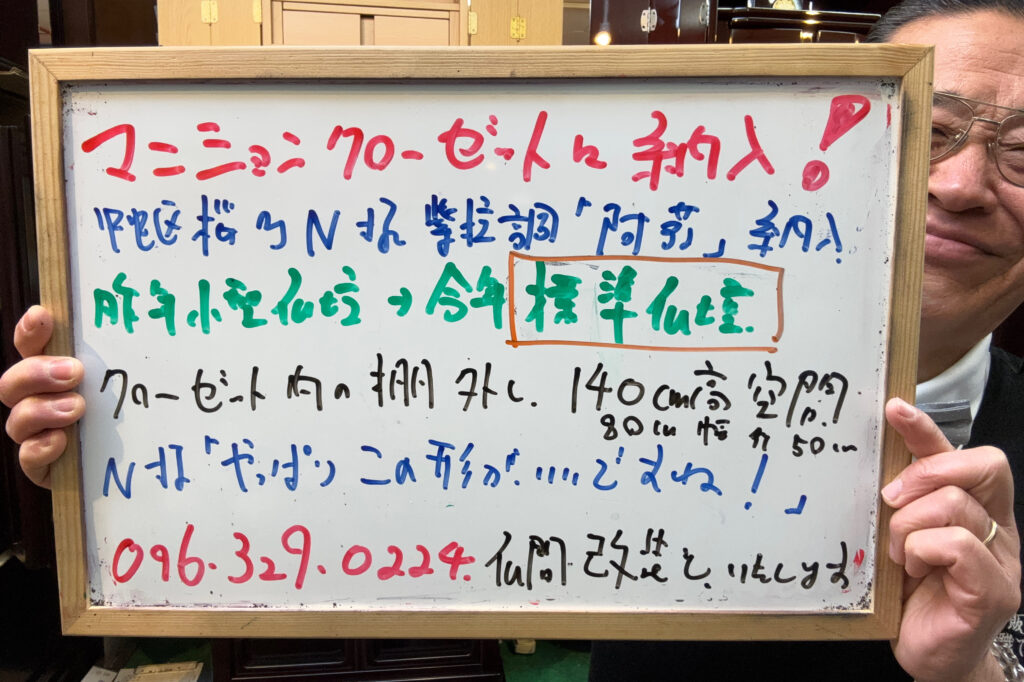 マンションクローゼットに納入!
中央区桜乃N様 紫檀調「阿蘇」納入!
昨年小型仏壇→今年標準仏壇.
クローゼット内の棚外し.140cm高空間.
80cm幅 50cm
N様「やっぱりこの形が‥‥ですよね!」
096.329.0224.仏間改造もいたします!
版